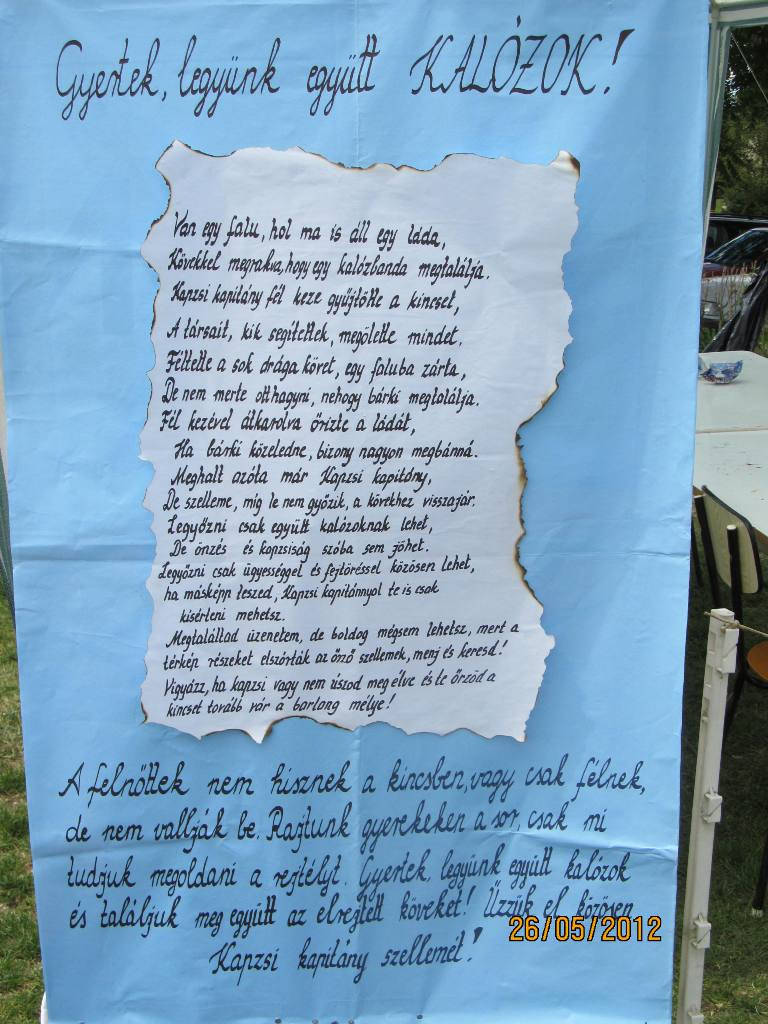 Gyertek, legyünk együtt KALÓZOK!
Van egy falu, hol ma is áll egy láda,
Kövekkel megrakva, hogy egy kalózbanda megtalálja.
Kapzsi kapitány fél keze gyűjtötte a kincset,
A társait, kik segítettek, megölette mindet.
Féltette a sok drága követ, egy faluba zárta,
De nem merte otthagyni, nehogy bárki megtalálja.
Fél kezével átkarolva őrizte a ládát,
Ha bárki közeledne, bizony nagyon megbánná.
Meghalt azóta már Kapzsi kapitány,
De szelleme, míg le nem győzik, a kövekhez visszajár.
Legyőzni csak együtt kalózoknak lehet,
De önzés és kapzsiság szóba sem jöhet.
Legyőzni csak ügyességgel és fejtöréssel közösen lehet,
ha másképp teszed, Kapzsi kapitánnyal te is csak
kísérteni mehetsz.
Megtaláltad üzenetem, de boldog mégsem lehetsz, mert a
térkép részeket elszórták az őrző szellemek, menj és keresd!
Vigyázz, ha kapzsi vagy nem úszod meg élve és te őrzöd a
kincset tovább vár a barlang mélye!
A felnőttek nem hisznek a kincsben, vagy csak félnek,
de nem vallják be. Rajtunk gyerekeken a sor, csak mi
tudjuk megoldani a rejtélyt. Gyertek, legyünk együtt kalózok
és találjuk meg együtt az elrejtett köveket! Űzzük el közösen
Kapzsi kapitány szellemét!
26/05/2012